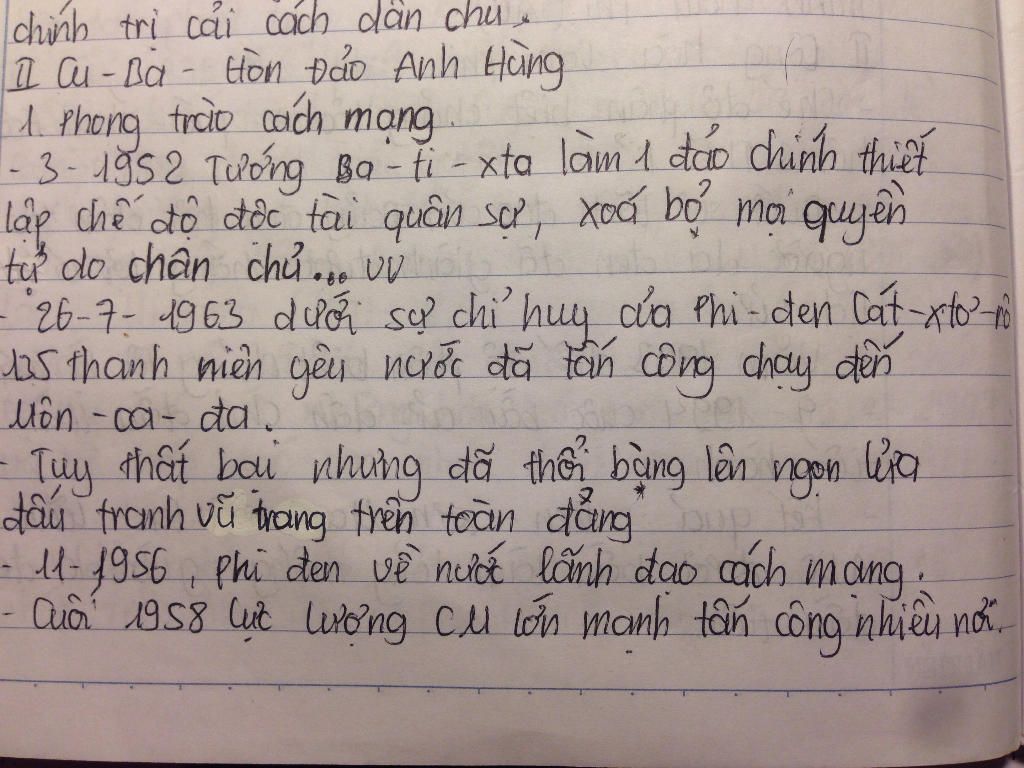 chính trị cải cách dân chủ.
II Cu-Ba - Hòn Đảo Anh Hùng
1. Phong trào cách mạng.
- 3 - 1952 Tướng Ba - ti - xta làm 1 đảo chính thiết
lập chế độ độc tài quân sự, xoá bỏ mọi quyền
tự do chân chủ... vv
- 26-7- 1963 dưới sự chỉ huy của Phi-đen Cát-xtơ-rô
135 thanh niên yêu nước đã tấn công chạy đến
Môn-ca-đa.
- Tuy thất bại nhưng đã thổi bùng lên ngọn lửa
đấu tranh vũ trang trên toàn đảng
- 11-1956, phi đen về nước lãnh đạo cách mạng.
- Cuối 1958 lực lượng CM lớn mạnh tấn công nhiều nơi.